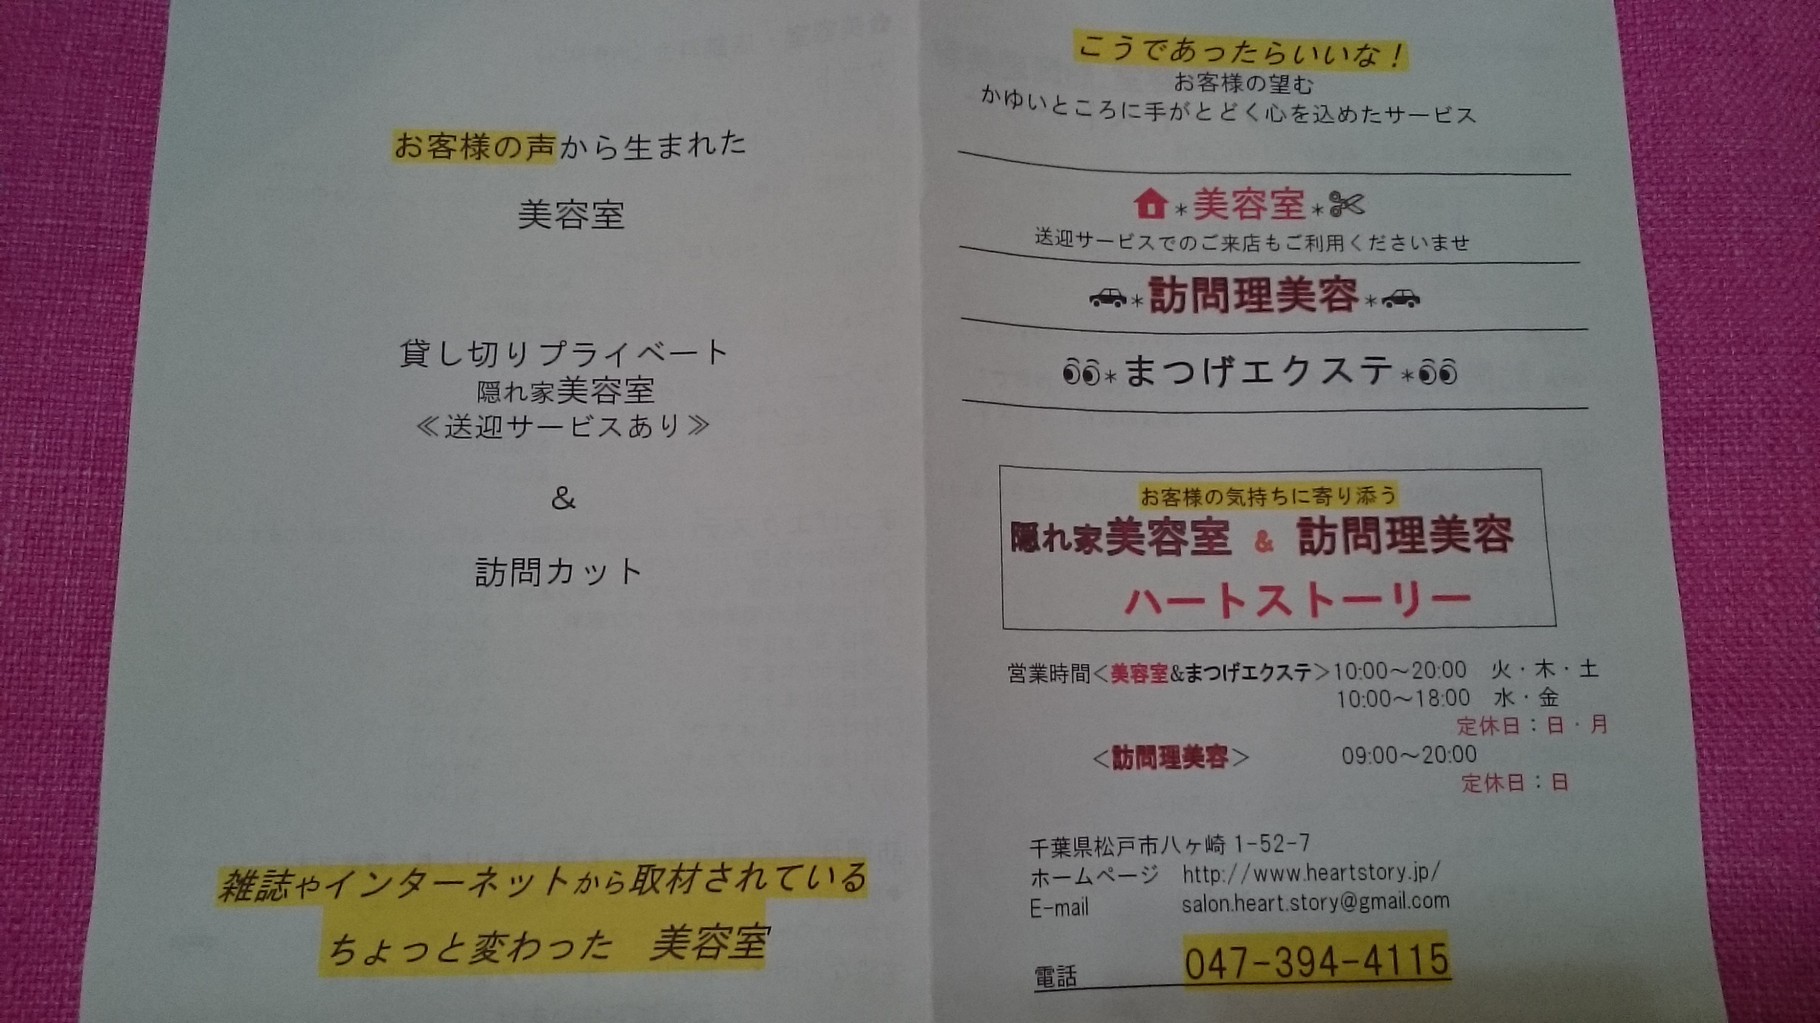 お客様の声から生まれた
美容室
貸し切りプライベート
隠れ家美容室
≪送迎サービスあり≫
&
訪問カット
雑誌やインターネットから取材されている
ちょっと変わった　美容室
こうであったらいいな！
お客様の望む
かゆいところに手がとどく心を込めたサービス
＊美容室＊
送迎サービスでのご来店もご利用くださいませ
＊訪問理美容＊
＊まつげエクステ＊
お客様の気持ちに寄り添う
隠れ家美容室 & 訪問理美容
ハートストーリー
営業時間＜美容室&まつげエクステ＞10:00～20:00　火・木・土
10:00～18:00　水・金
定休日：日・月
＜訪問理美容＞　09:00～20:00
定休日：日
千葉県松戸市八ヶ崎 1-52-7
ホームページ　http://www.heartstory.jp/
E-mail　salon.heart.story@gmail.com
電話　047-394-4115